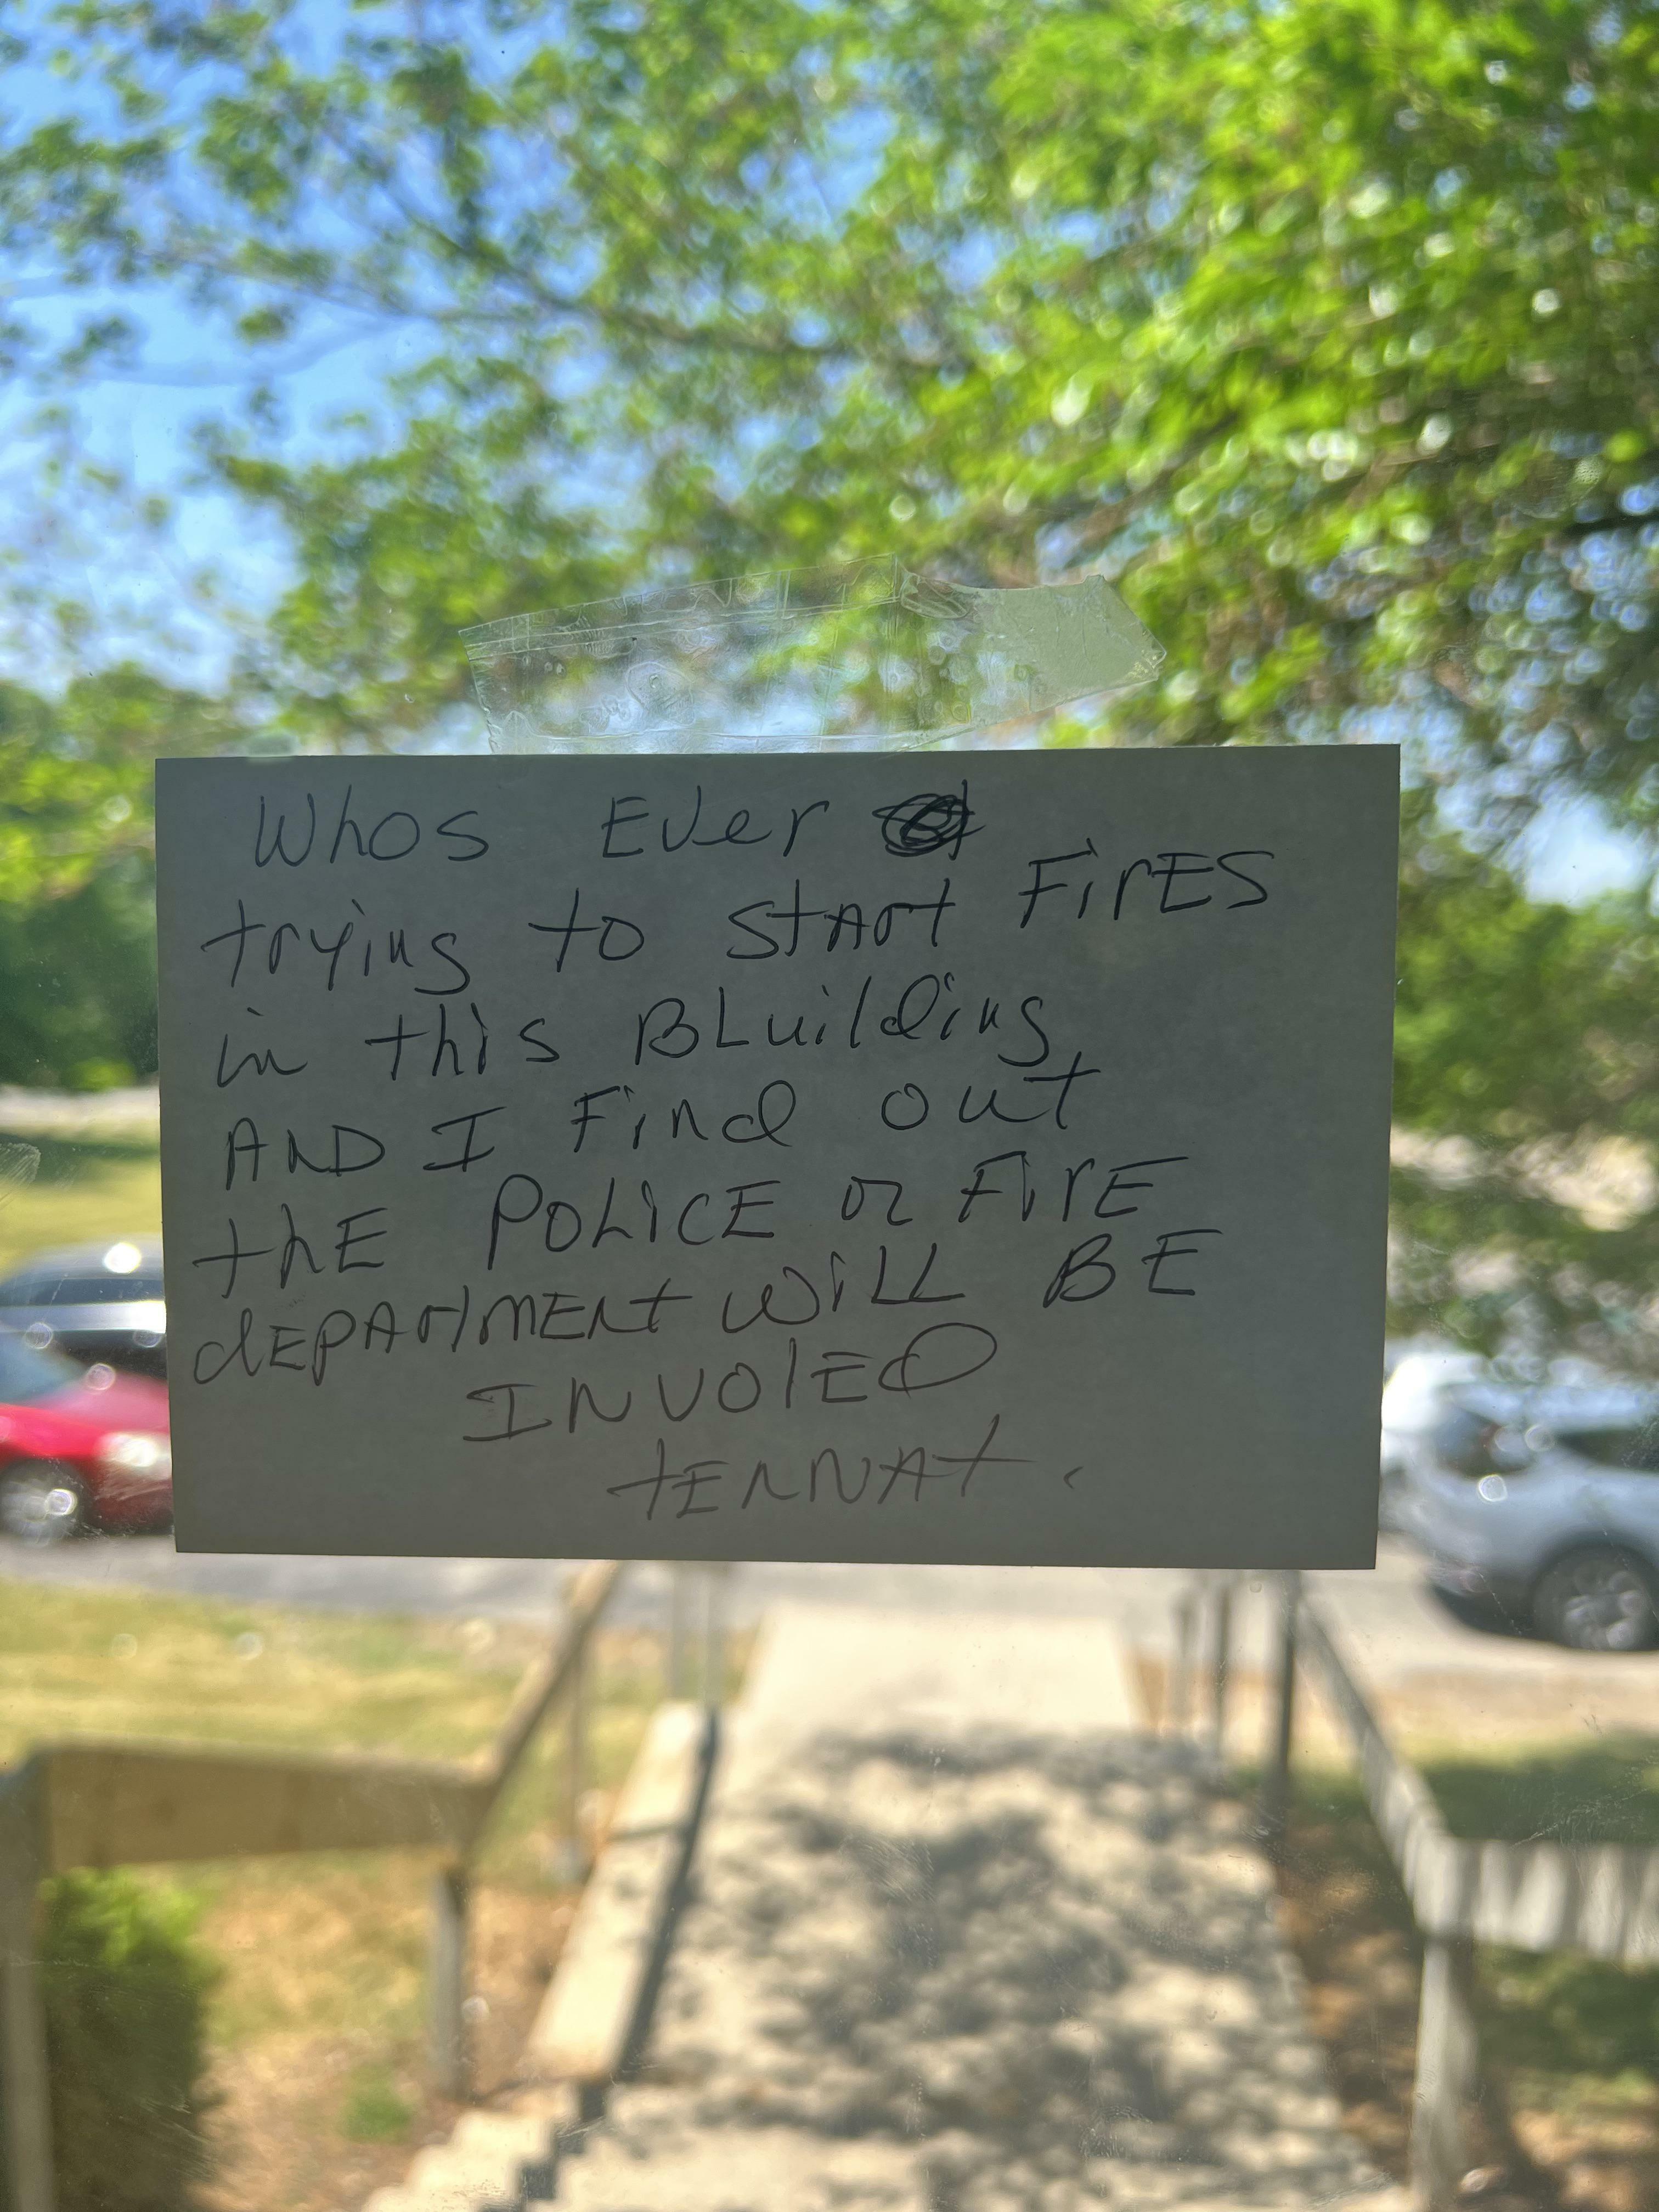 Whos Ever
trying to start FirES
in this BLuilding,
AND I Find out
thE POLiCE or FirE
dEPArtMENt WiLL BE
INVOlED
tENNAt.